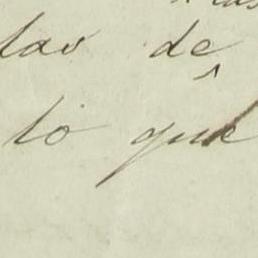 las de
lo que